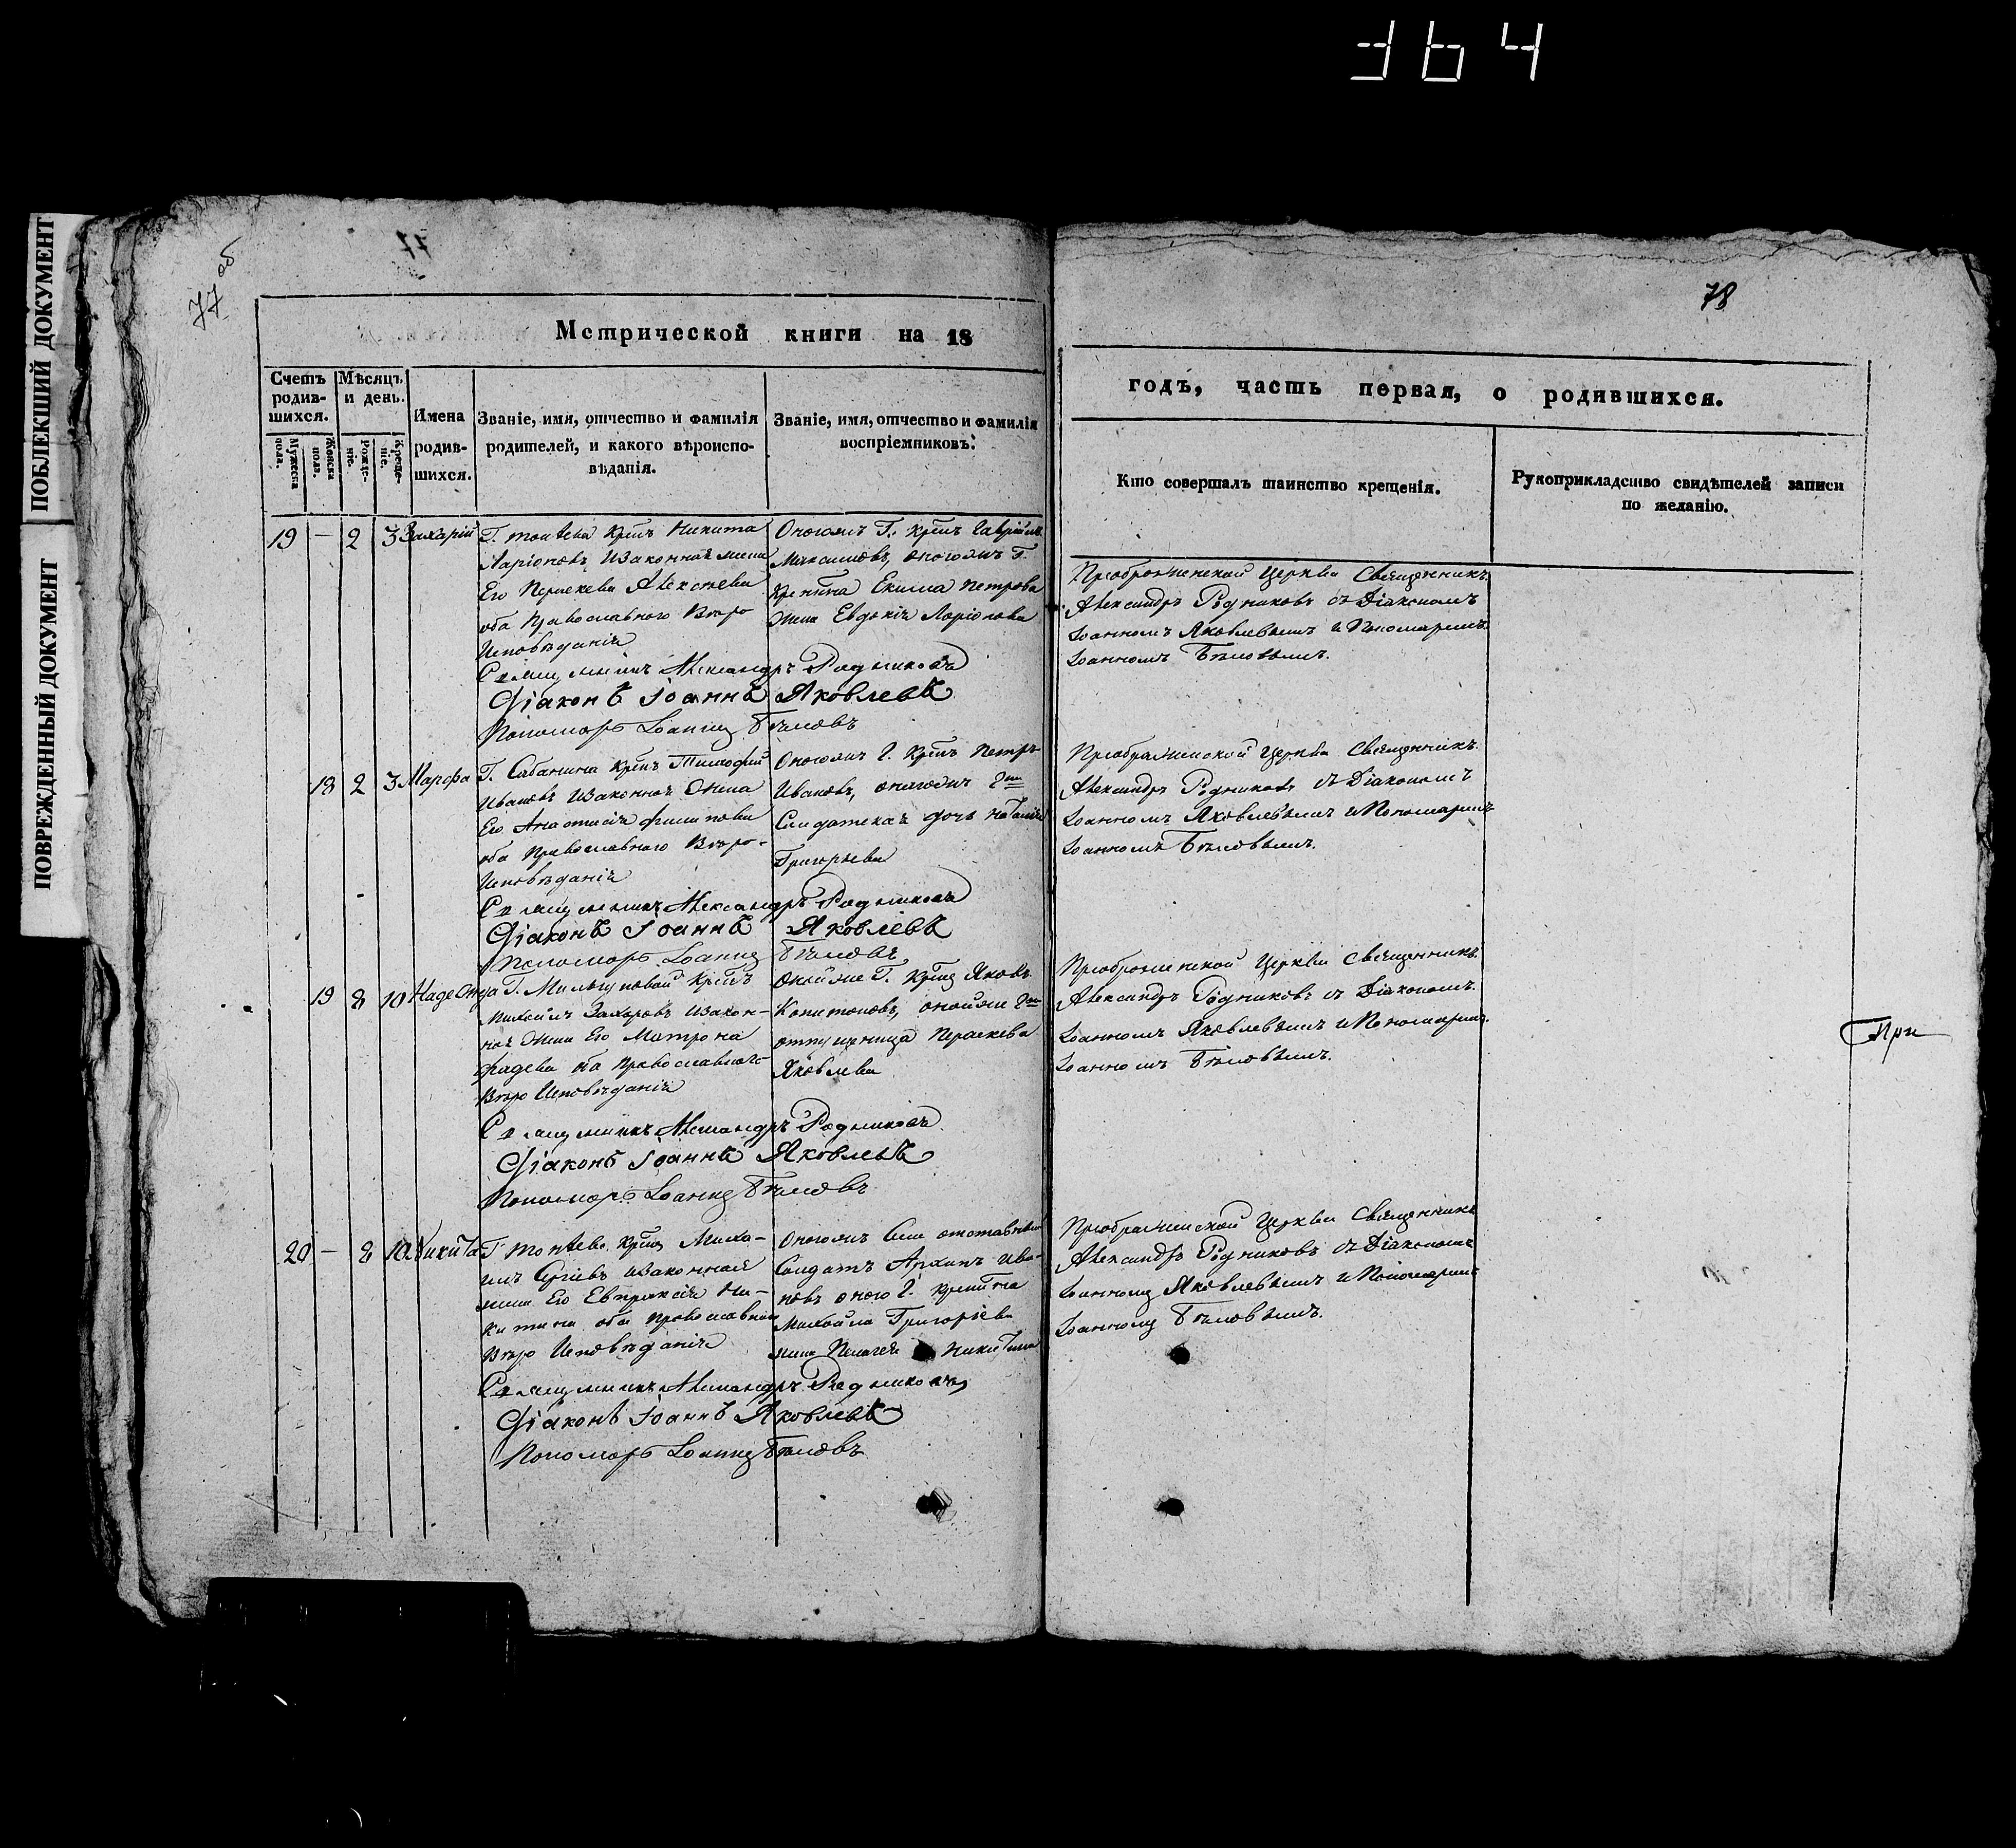 364
ПОБЛЕКШИЙ ДОКУМЕНТ
ПОВРЕЖДЕННЫЙ ДОКУМЕНТ
77 об
77
78
Метрической книги на 18
годъ, часть первая, о родившихся.
Счетъ родив-
шихся.
Мужеска пола.
Женска пола.
Мѣсяцъ и день.
Рожде-
ніе.
Креще-
ніе.
Имена
родив-
шихся.
Званіе, имя, отчество и фамилія
родителей, и какого вѣроиспо-
вѣданія.
Званіе, имя, отчество и фамилія
воспріемниковъ.
Кто совершалъ таинство крещенія.
Рукоприкладство свидѣтелей записи
по желанію.
19 — 2 3 Захарій
Никита
Ларіоновъ, изаконная жена
Его Параскева Алексѣева
оба Православнаго Вѣро
Исповѣданія
Гавріилъ
Максимовъ, оногожъ Г.
Екима Петрова
жена Евдокія Ларіонова
Преображенской Церкви Священникъ
Александръ Родниковъ съ Діакономъ
Іоанномъ Яковлевымъ и Пономаремъ
Іоанномъ Бѣловымъ.
Священникъ Александръ Родниковъ
Діаконъ Іоаннъ Яковлевъ
Пономарь Іоаннъ Бѣловъ
18 2 3 Марфа
Г. Сабанина Крѣп. Тимофей
Ивановъ изаконная жена
Его Анастасія Филипова
оба Православнаго Вѣро-
Исповѣданія
Оногожъ Г. Крѣп. Петръ
Ивановъ, оногожъ Гна
Солдатская дочь Наталія
Григорьева
Преображенской Церкви Священникъ
Александръ Родниковъ съ Діакономъ
Іоанномъ Яковлевымъ и Пономаремъ
Іоанномъ Бѣловымъ.
Священникъ Александръ Родниковъ
Діаконъ Іоаннъ Яковлевъ
Пономарь Іоаннъ Бѣловъ
19 8 10 Надежда
Михайлъ Захаровъ изакон-
ная жена Его Матрона
Фадева оба Православнаго
Вѣро Исповѣданія
Оной же Г. Яковъ
Капитоновъ, оной же Гжи
отпущеница Параскева
Яковлева
Преображенской Церкви Священникъ
Александръ Родниковъ съ Діакономъ
Іоанномъ Яковлевымъ и Пономаремъ
Іоанномъ Бѣловымъ.
При
Священникъ Александръ Родниковъ
Діаконъ Іоаннъ Яковлевъ
Пономарь Іоаннъ Бѣловъ
20 — 8 10 Никита
Миха-
илъ Сергіевъ изаконная
жена Его Евпраксія Ни-
китина оба Православнаго
Вѣро Исповѣданія
Оногожъ Села отставный
Солдатъ Архипъ Ива-
новъ оного Г.
Михайла Григорьева
жена Пелагея Никитина
Преображенской Церкви Священникъ
Александръ Родниковъ съ Діакономъ
Іоанномъ Яковлевымъ и Пономаремъ
Іоанномъ Бѣловымъ.
Священникъ Александръ Родниковъ
Діаконъ Іоаннъ Яковлевъ
Пономарь Іоаннъ Бѣловъ